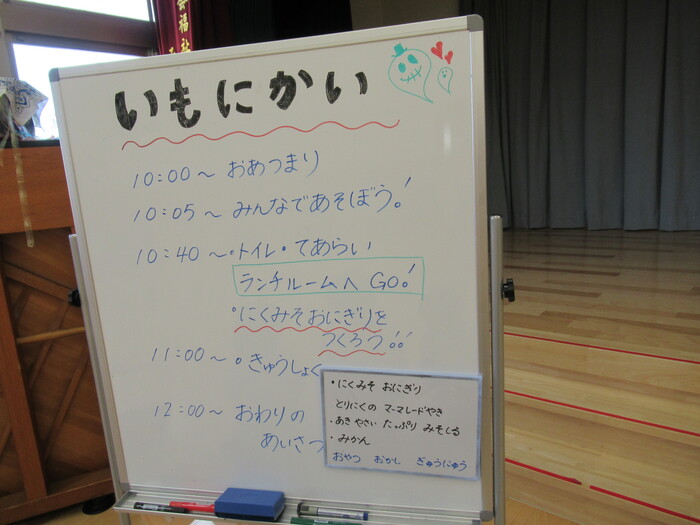 いもにかい
10:00～ おあつまり
10:05～ みんなであそぼう!
10:40～・トイレ・てあらい
ランチルームへ GO!
・にくみそおにぎりを
つくろう!!
11:00～・きゅうしょく
12:00～ おわりの
あいさつ
・にくみそ おにぎり
とりにくの マーマレードやき
・あきやさい たっぷり みそしる
・みかん
おやつ おかし ぎゅうにゅう